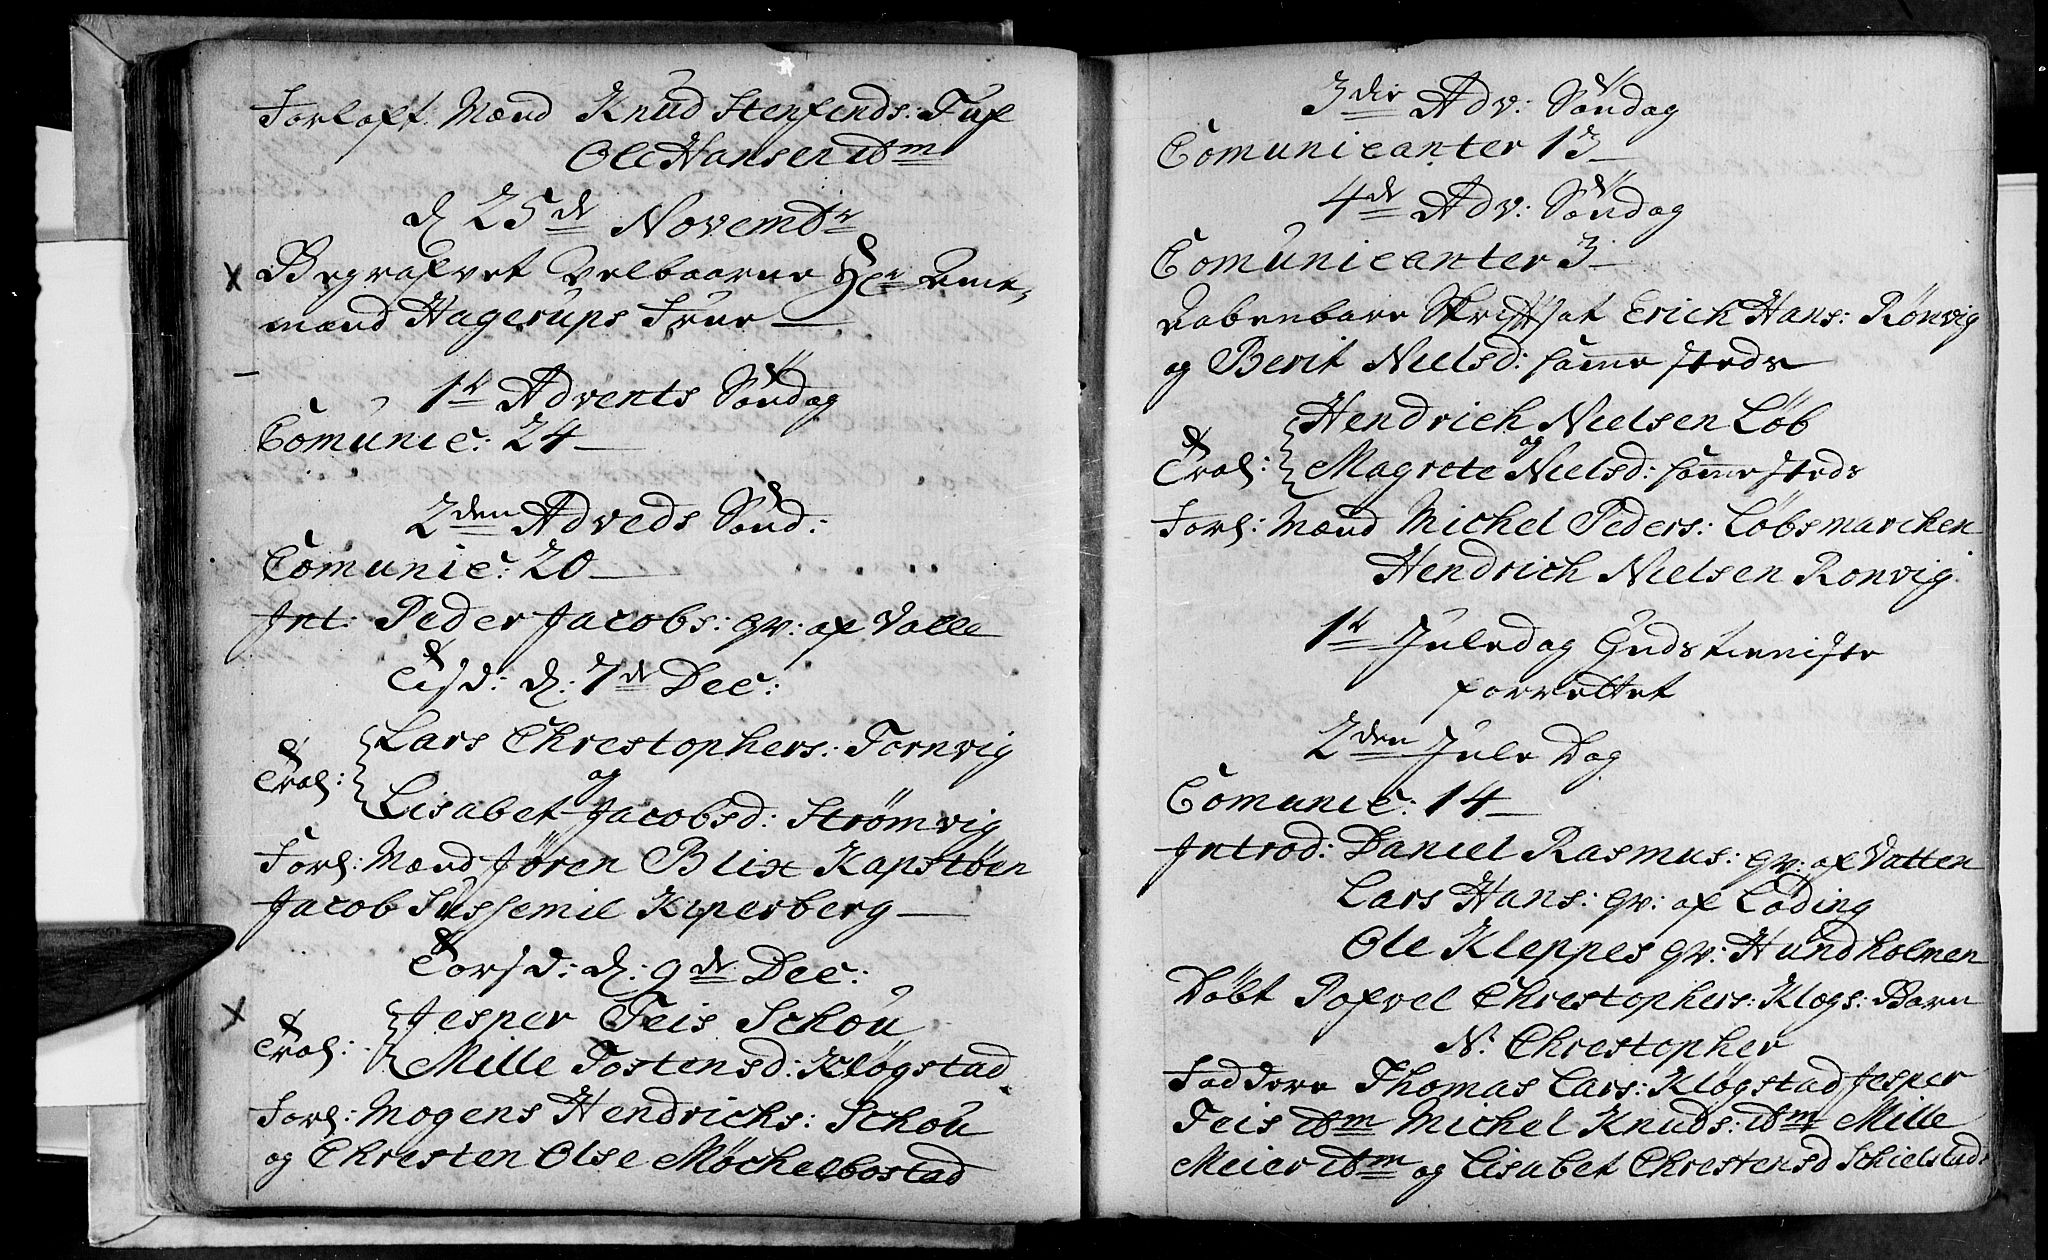 Forlofs: Mænd Knud Stensends: Tuf
Ole Hansen ibm
d 25de Novembr
Begrafvet Velbaarne Hr Amt-
mand Hagerups Frue
1te Advents Søndag
Comunic: 24
2den Adveds Sønd:
Comunic: 20
Int: Peder Jacobs: qv: af Valle
Tisd: d: 7de Dec:
Trol: Lars Chrestophers: Fornvig
og
Lisabet Jacobsd: Strømvig
Forl: Mænd Jøren Blix Kapstøen
Jacob Kiperberg
Torsd: d: 9de Dec:
Trol: Jesper Feis Schou
Mille Tostensd: Kløgstad
Forl: Mogens Hendrichs: Schou
og Chresten Olse Møchelbostad
3die Adv: Søndag
Comunicanter 13
4de Adv: Søndag
Comunicanter 3
Aabenbare Skriftet Erich Hans: Rønvig
og Berit Nielsd: samme steds
Trol: Hendrich Nielsen Løb
og
Magrete Nielsd: samme steds
Forl: Mænd Michel Peders: Løbsmarchen
Hendrich Nielsen Ronvig
1te Juledag Gudstieniste
forrettet
2den Jule Dag
Comunic: 14
Introd: Daniel Rasmus: qv: af Vatten
Lars Hans: qv: af Løding
Ole Kleppes qv: Hundholmen
Døbt Pofvel Chrestophers: Klogs: Barn
N: Chrestopher
Faddere Thomas Lars: Kløgstad Jesper
Feis ibm Michel Knuds: ibm Mille
Meier ibm og Lisabet Chrestensd Schielstad